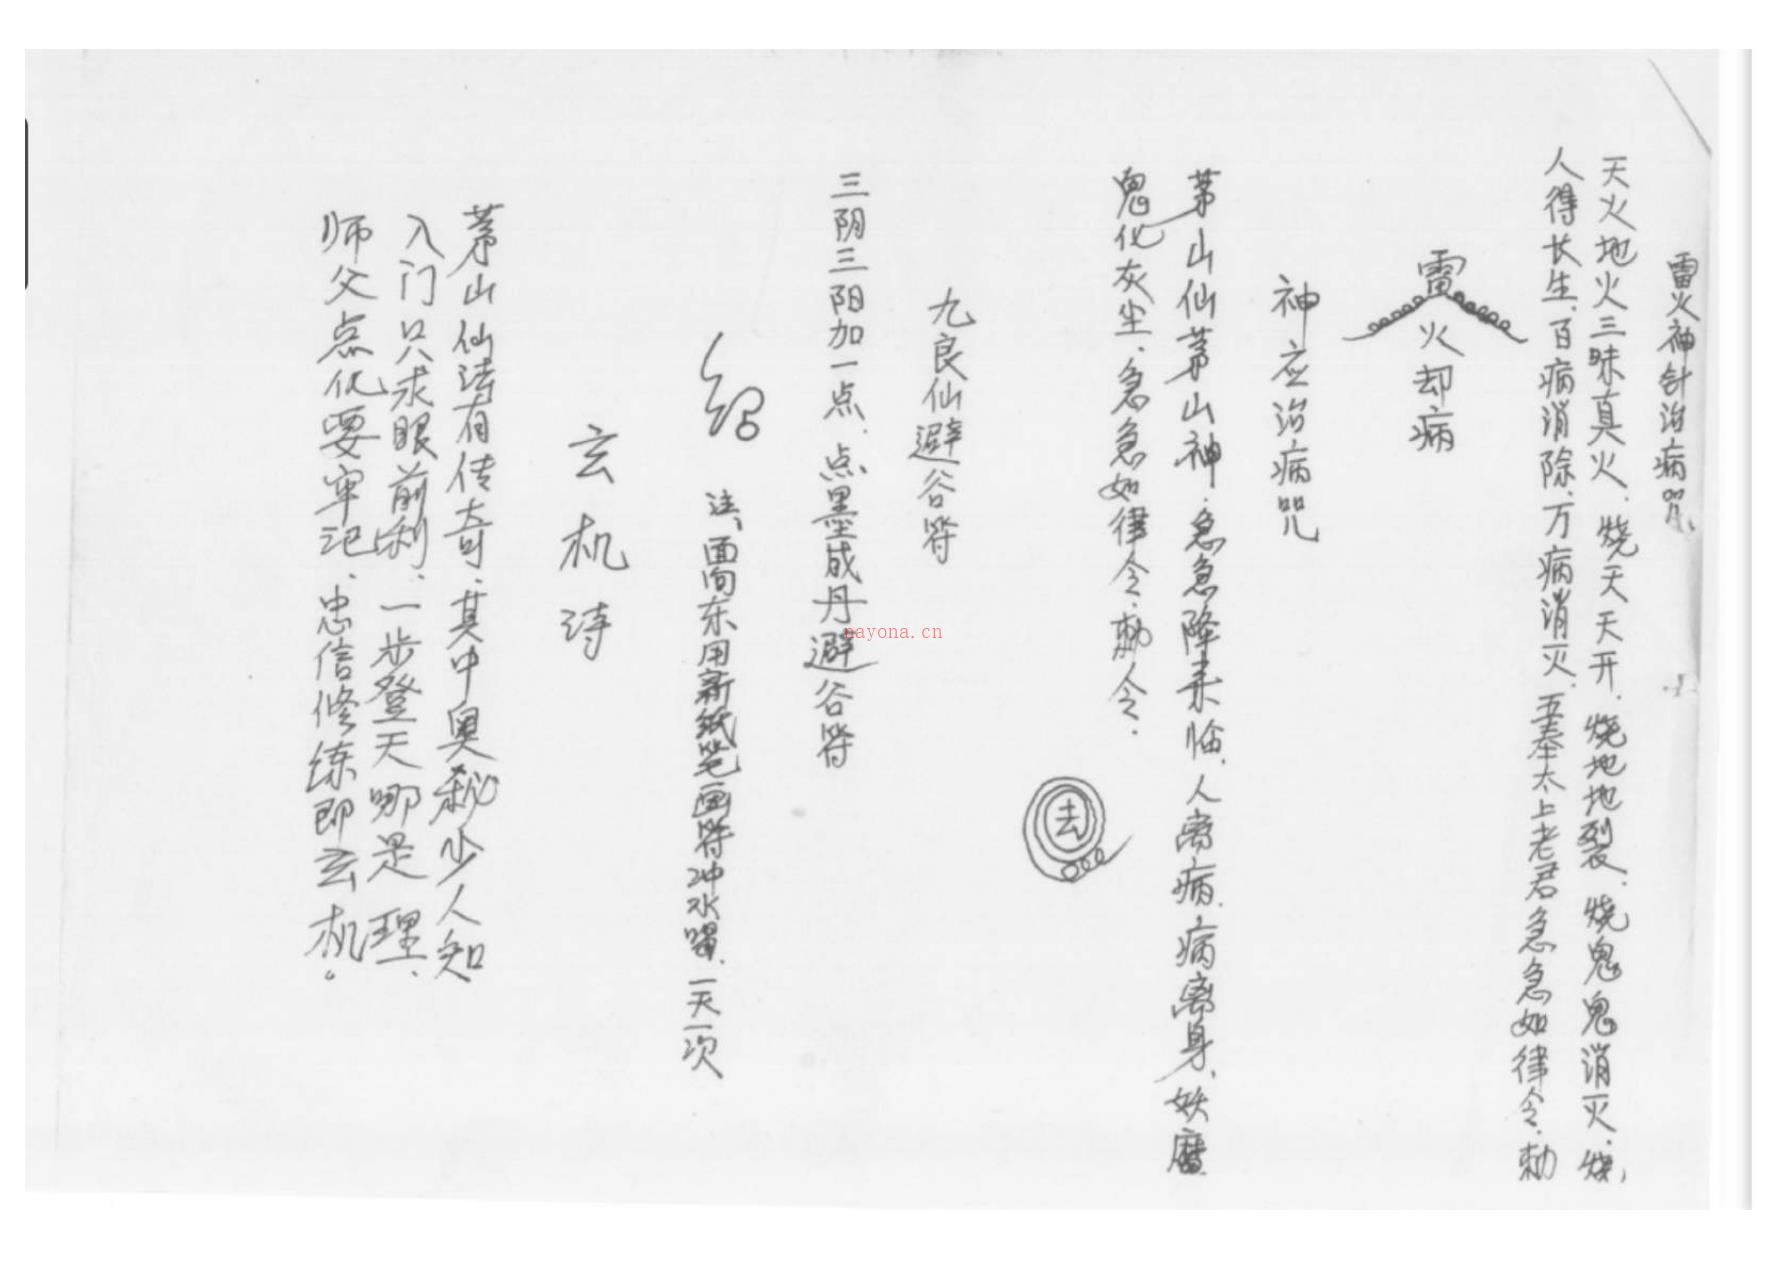 雷火神针治病咒
天火地火三昧真火、烧天天开、烧地地裂、烧鬼鬼消灭、烧
人得长生、百病消除、万病消灭、五奉太上老君急急如律令、勅
雷
火却病
神应治病咒
茅山仙茅山神、急急降来临、人离病、病离身、妖魔
鬼化灰尘、急急如律令、勅令、
去
九良仙避谷符
三阴三阳加一点、点墨成丹避谷符
注、面向东用新纸笔画符冲水喝、一天一次
玄机诗
茅山仙法有传奇、其中奥秘少人知
入门只求眼前利、一步登天哪是理、
师父点化要牢记、忠信修练即玄机。
nayona.cn